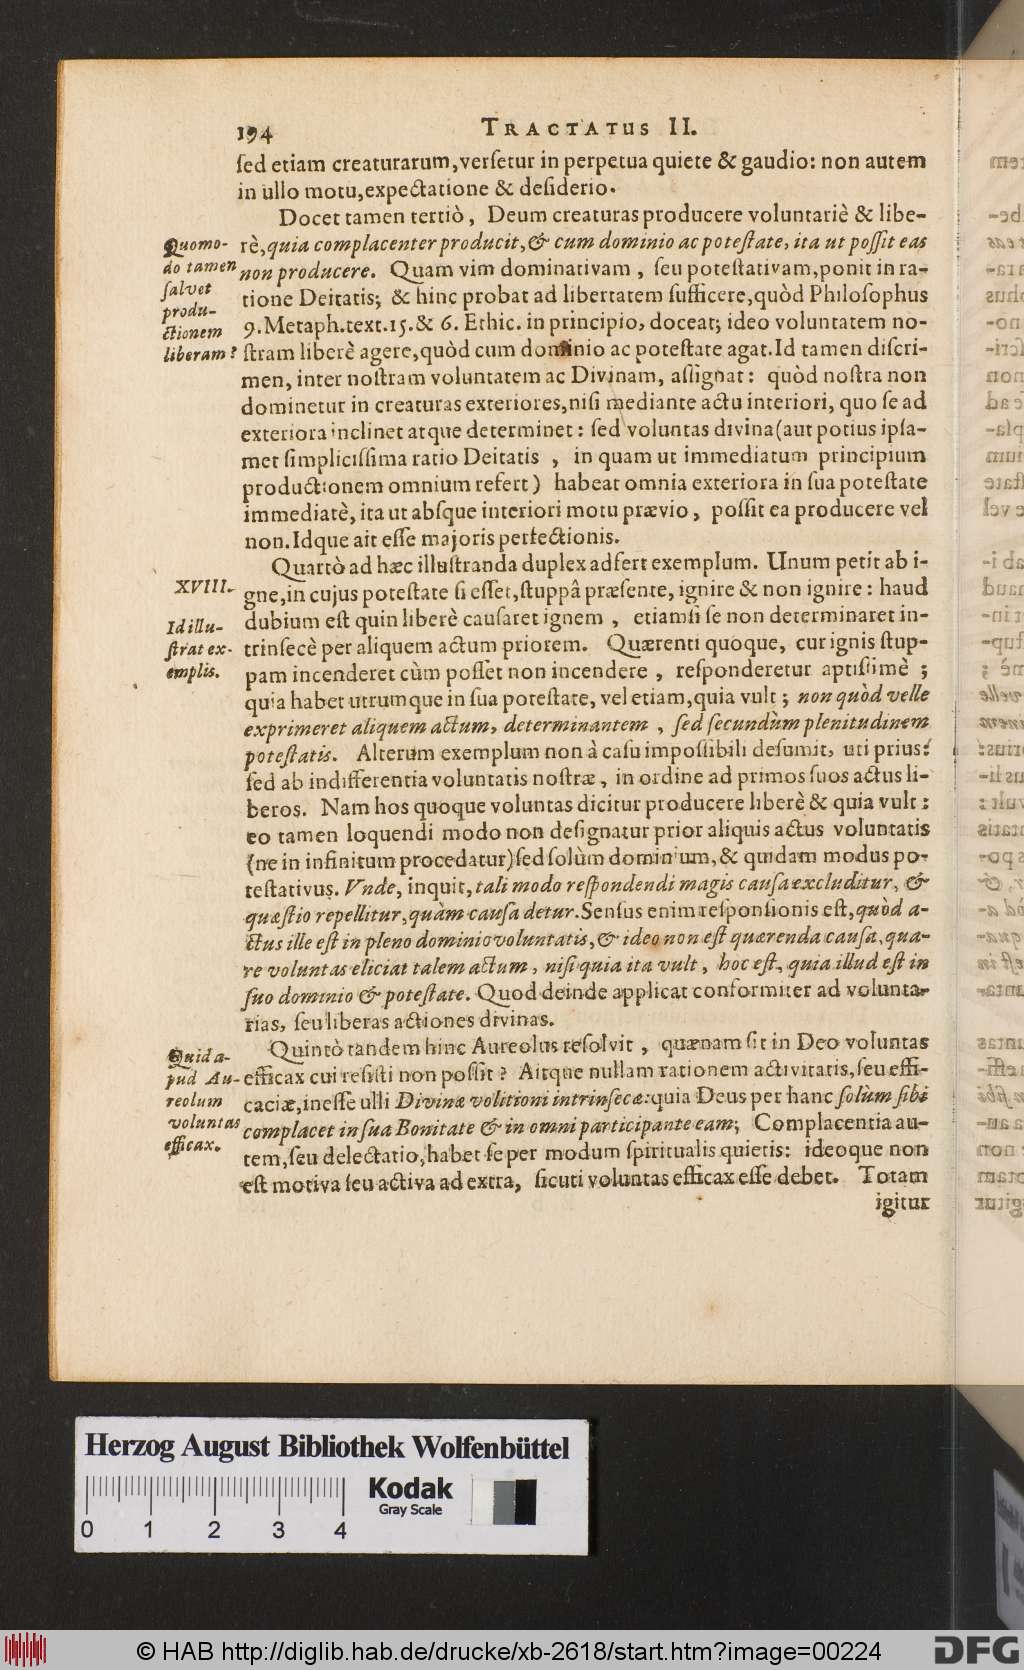 194 TRACTATUS II.
sed etiam creaturarum, versetur in perpetua quiete & gaudio: non autem
in ullo motu, expectatione & desiderio.
Docet tamen tertiò, Deum creaturas producere voluntariè & libe-
rè, quia complacenter producit, & cum dominio ac potestate, ita ut possit eas
non producere. Quam vim dominativam, seu potestativam, ponit in ra-
tione Deitatis; & hinc probat ad libertatem sufficere, quòd Philosophus
9. Metaph. text. 15. & 6. Ethic. in principio, doceat; ideo voluntatem no-
stram liberè agere, quòd cum dominio ac potestate agat. Id tamen discri-
men, inter nostram voluntatem ac Divinam, assignat: quòd nostra non
dominetur in creaturas exteriores, nisi mediante actu interiori, quo se ad
exteriora inclinet atque determinet: sed voluntas divina (aut potius ipsa-
met simplicissima ratio Deitatis, in quam ut immediatum principium
productionem omnium refert) habeat omnia exteriora in sua potestate
immediatè, ita ut absque interiori motu prævio, possit ea producere vel
non. Idque ait esse majoris perfectionis.
Quomo-
do tamen
salvet
produ-
ctionem
liberam?
Quartò ad hæc illustranda duplex adfert exemplum. Unum petit ab i-
gne, in cujus potestate si esset, stuppâ præsente, ignire & non ignire: haud
dubium est quin liberè causaret ignem, etiamsi se non determinaret in-
trinsecè per aliquem actum priorem. Quærenti quoque, cur ignis stup-
pam incenderet cùm posset non incendere, responderetur aptissimè;
quia habet utrumque in sua potestate, vel etiam, quia vult; non quòd velle
exprimeret aliquem actum, determinantem, sed secundùm plenitudinem
potestatis. Alterum exemplum non à casu impossibili desumit, uti prius:
sed ab indifferentia voluntatis nostræ, in ordine ad primos suos actus li-
beros. Nam hos quoque voluntas dicitur producere liberè & quia vult:
eo tamen loquendi modo non designatur prior aliquis actus voluntatis
(ne in infinitum procedatur) sed solùm dominium, & quidam modus po-
testativus. Vnde, inquit, tali modo respondendi magis causa excluditur, &
quæstio repellitur, quàm causa detur. Sensus enim responsionis est, quòd a-
ctus ille est in pleno dominio voluntatis, & ideo non est quærenda causa, qua-
re voluntas eliciat talem actum, nisi quia ita vult, hoc est, quia illud est in
suo dominio & potestate. Quod deinde applicat conformiter ad volunta-
rias, seu liberas actiones divinas.
XVIII.
Id illu-
strat ex-
emplis.
Quintò tandem hinc Aureolus resolvit, quænam sit in Deo voluntas
efficax cui resisti non possit? Aitque nullam rationem activitatis, seu effi-
caciæ, inesse ulli Divinæ volitioni intrinsecæ: quia Deus per hanc solùm sibi
complacet in sua Bonitate & in omni participante eam; Complacentia au-
tem, seu delectatio, habet se per modum spiritualis quietis: ideoque non
est motiva seu activa ad extra, sicuti voluntas efficax esse debet. Totam
igitur
Quid a-
pud Au-
reolum
voluntas
efficax.
Herzog August Bibliothek Wolfenbüttel
Kodak
Gray Scale
0 1 2 3 4
© HAB http://diglib.hab.de/drucke/xb-2618/start.htm?image=00224
DFG